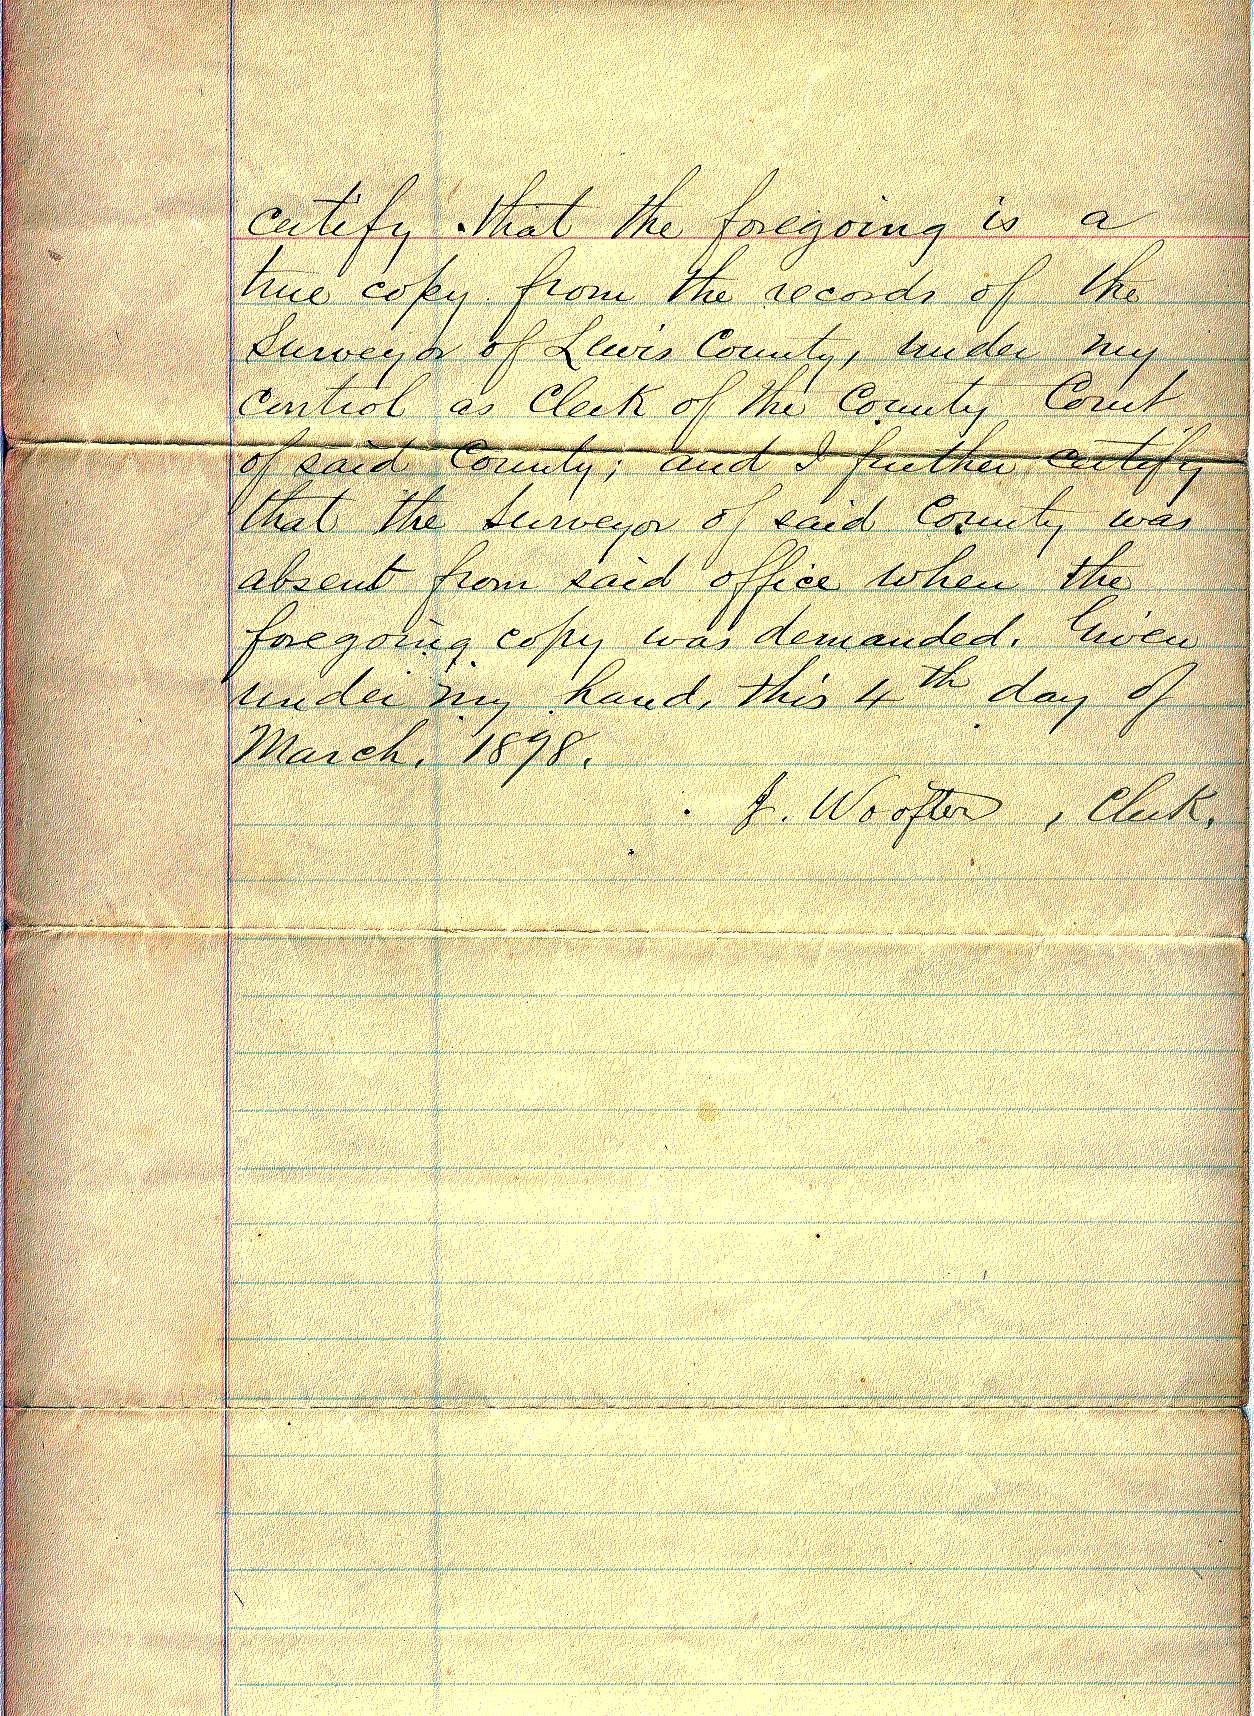 certify that the foregoing is a
true copy from the records of the
Surveyor of Lewis County, under my
control as Clerk of the County Court
of said County; and I further certify
that the Surveyor of said County was
absent from said office when the
foregoing copy was demanded. Given
under my hand, this 4th day of
March, 1898.
J. Woofter, Clerk.